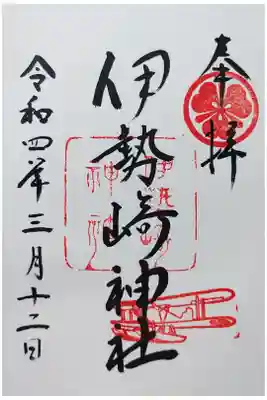 奉拝
伊勢崎神社
令和四年三月十二日